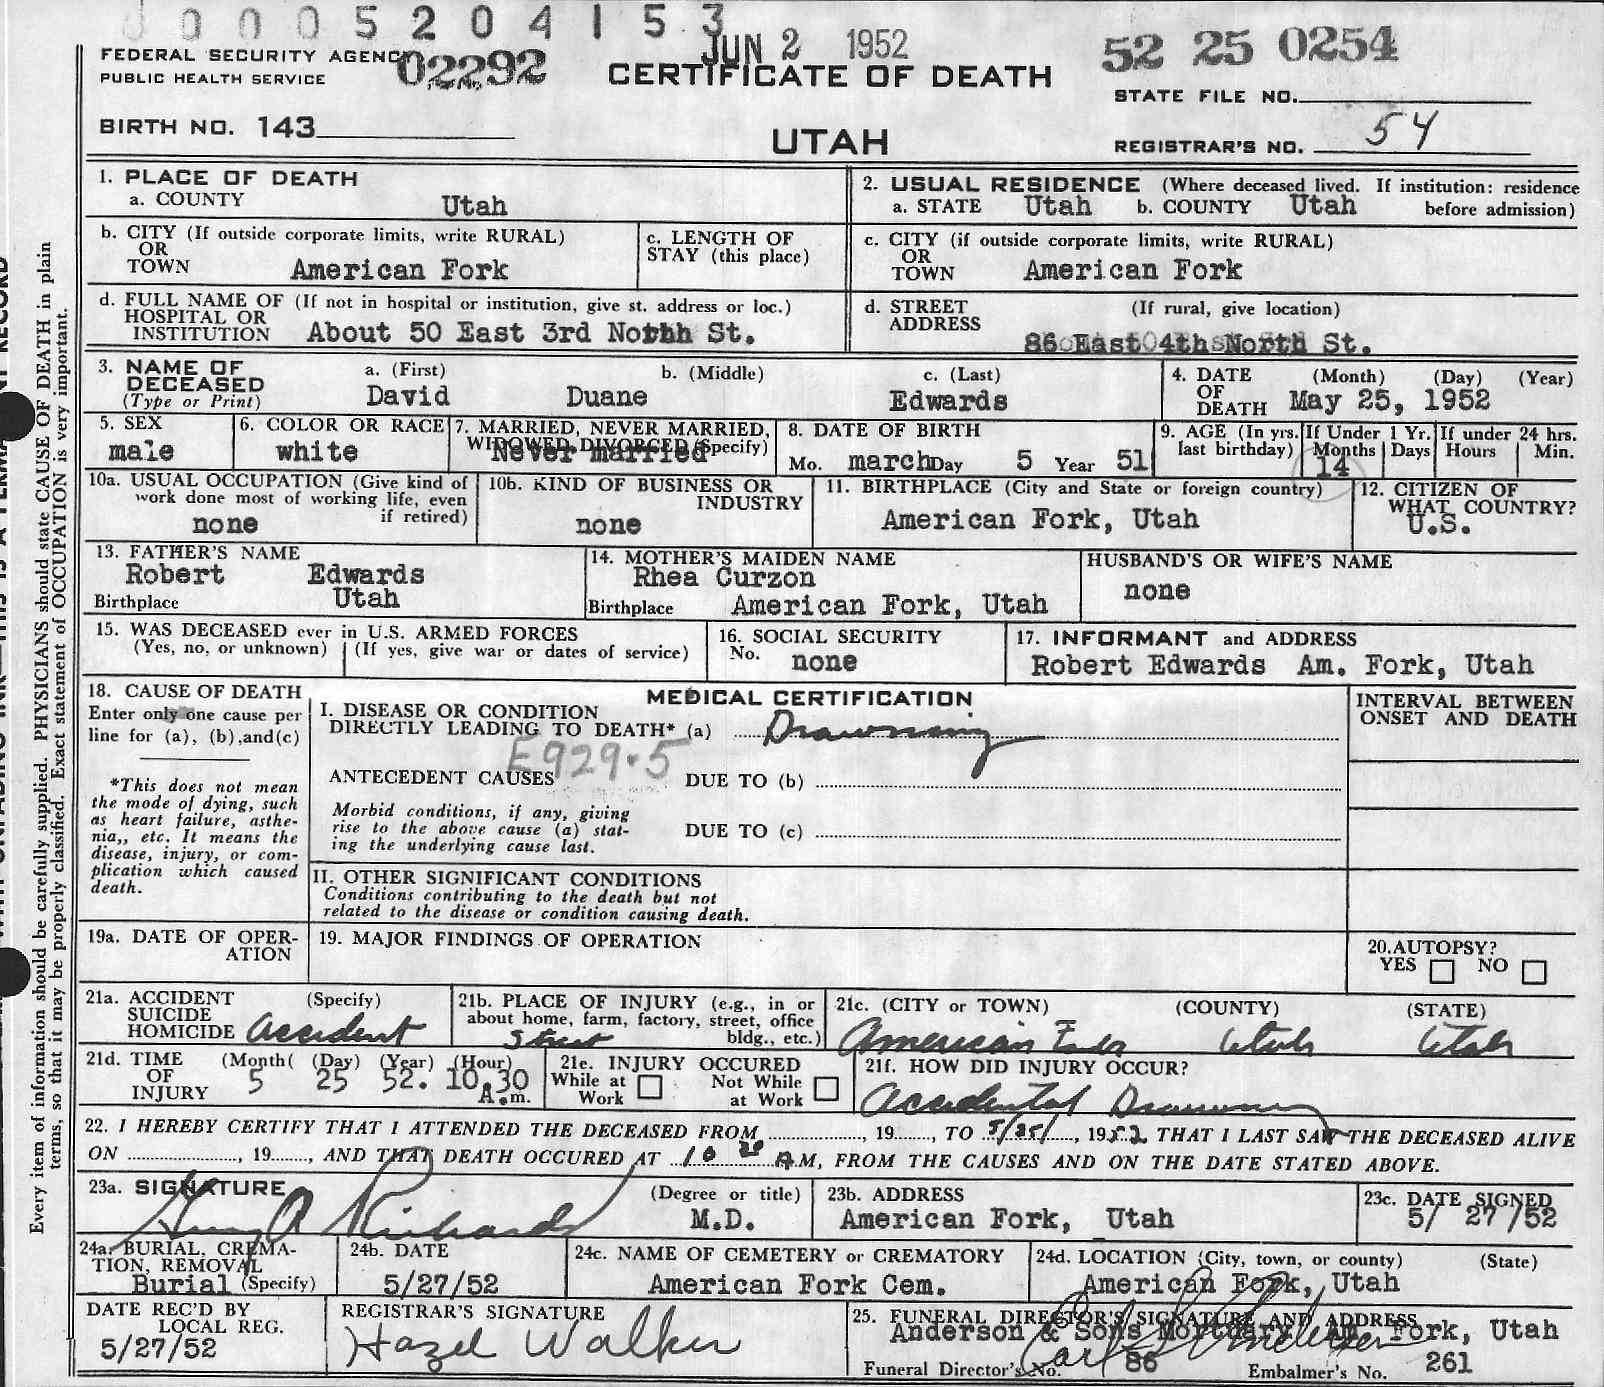 0 0 0 5 2 0 4 1 5 3
JUN 2 1952
52 25 0254
FEDERAL SECURITY AGENCY
PUBLIC HEALTH SERVICE
02292
CERTIFICATE OF DEATH
STATE FILE NO.
BIRTH NO. 143
UTAH
REGISTRAR'S NO. 54
1. PLACE OF DEATH
a. COUNTY Utah
2. USUAL RESIDENCE (Where deceased lived. If institution: residence before admission)
a. STATE Utah b. COUNTY Utah
b. CITY (If outside corporate limits, write RURAL)
OR
TOWN American Fork
c. LENGTH OF
STAY (this place)
c. CITY (if outside corporate limits, write RURAL)
OR
TOWN American Fork
d. FULL NAME OF (If not in hospital or institution, give st. address or loc.)
HOSPITAL OR
INSTITUTION About 50 East 3rd North St.
d. STREET (If rural, give location)
ADDRESS
86 East 4th North St.
3. NAME OF
DECEASED
(Type or Print)
a. (First) b. (Middle) c. (Last)
David Duane Edwards
4. DATE (Month) (Day) (Year)
OF
DEATH May 25, 1952
5. SEX
male
6. COLOR OR RACE
white
7. MARRIED, NEVER MARRIED,
WIDOWED, DIVORCED (Specify)
Never married
8. DATE OF BIRTH
Mo. march Day 5 Year 51
9. AGE (In yrs.
last birthday)
If Under 1 Yr.
Months Days
14
If under 24 hrs.
Hours Min.
10a. USUAL OCCUPATION (Give kind of
work done most of working life, even
if retired)
none
10b. KIND OF BUSINESS OR
INDUSTRY
none
11. BIRTHPLACE (City and State or foreign country)
American Fork, Utah
12. CITIZEN OF
WHAT COUNTRY?
U.S.
13. FATHER'S NAME
Robert Edwards
Birthplace Utah
14. MOTHER'S MAIDEN NAME
Rhea Curzon
Birthplace American Fork, Utah
HUSBAND'S OR WIFE'S NAME
none
15. WAS DECEASED ever in U.S. ARMED FORCES
(Yes, no, or unknown) (If yes, give war or dates of service)
16. SOCIAL SECURITY
No. none
17. INFORMANT and ADDRESS
Robert Edwards Am. Fork, Utah
18. CAUSE OF DEATH
Enter only one cause per
line for (a), (b),and(c)
*This does not mean
the mode of dying, such
as heart failure, asthe-
nia,, etc. It means the
disease, injury, or com-
plication which caused
death.
MEDICAL CERTIFICATION
I. DISEASE OR CONDITION
DIRECTLY LEADING TO DEATH* (a) Drowning
E929.5
ANTECEDENT CAUSES DUE TO (b)
Morbid conditions, if any, giving
rise to the above cause (a) stat-
ing the underlying cause last.
DUE TO (c)
II. OTHER SIGNIFICANT CONDITIONS
Conditions contributing to the death but not
related to the disease or condition causing death.
INTERVAL BETWEEN
ONSET AND DEATH
19a. DATE OF OPER-
ATION
19. MAJOR FINDINGS OF OPERATION
20. AUTOPSY?
YES NO
21a. ACCIDENT (Specify)
SUICIDE
HOMICIDE Accident
21b. PLACE OF INJURY (e.g., in or
about home, farm, factory, street, office
bldg., etc.)
Street
21c. (CITY or TOWN) (COUNTY) (STATE)
American Fork Utah Utah
21d. TIME (Month( (Day) (Year) (Hour)
OF
INJURY
5 25 52. 10.30
A.m.
21e. INJURY OCCURED
While at
Work
Not While
at Work
21f. HOW DID INJURY OCCUR?
Accidental Drowning
22. I HEREBY CERTIFY THAT I ATTENDED THE DECEASED FROM , 19 , TO 5/25/ , 1952 THAT I LAST SAW THE DECEASED ALIVE
ON , 19 , AND THAT DEATH OCCURED AT 10 30 A.M, FROM THE CAUSES AND ON THE DATE STATED ABOVE.
23a. SIGNATURE (Degree or title)
Guy A Richards M.D.
23b. ADDRESS
American Fork, Utah
23c. DATE SIGNED
5/ 27 /52
24a. BURIAL, CREMA-
TION, REMOVAL
Burial (Specify)
24b. DATE
5/27/52
24c. NAME OF CEMETERY or CREMATORY
American Fork Cem.
24d. LOCATION (City, town, or county) (State)
American Fork, Utah
DATE REC'D BY
LOCAL REG.
5/27/52
REGISTRAR'S SIGNATURE
Hazel Walker
25. FUNERAL DIRECTOR'S SIGNATURE AND ADDRESS
Anderson & Sons Mortuary Am Fork, Utah
Funeral Director's No. 86 Embalmer's No. 261
Every item of information should be carefully supplied. PHYSICIANS should state CAUSE OF DEATH in plain
terms, so that it may be properly classified. Exact statement of OCCUPATION is very important.